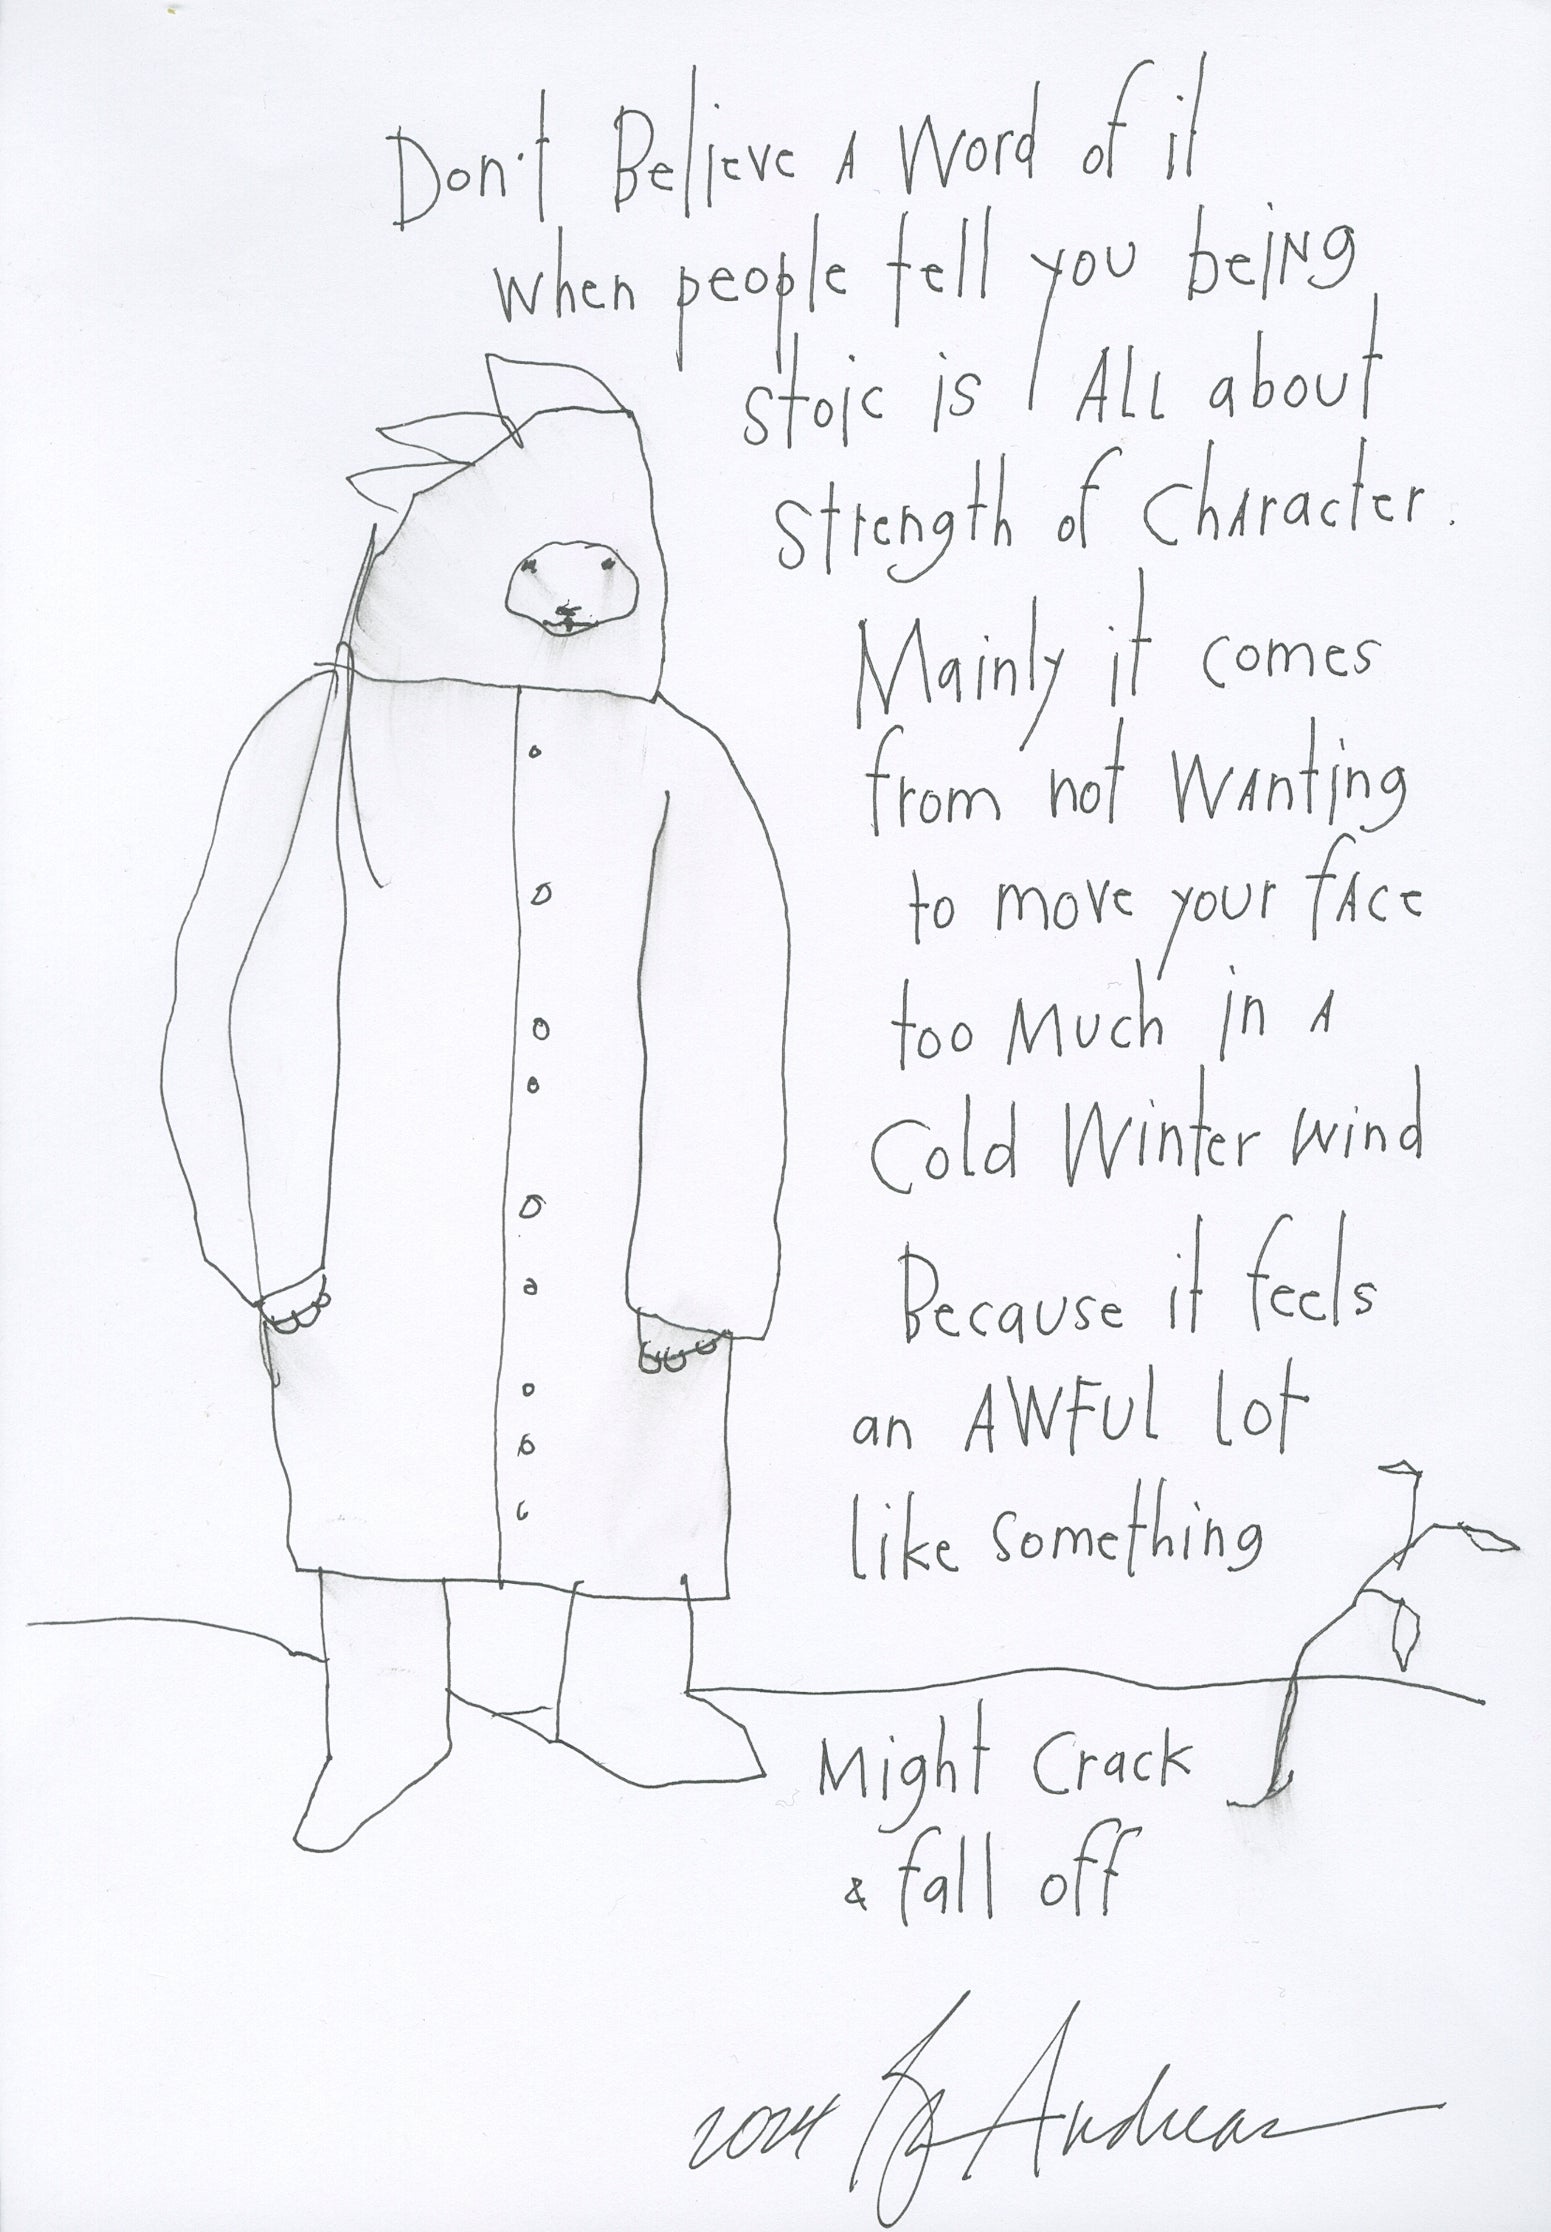 Don't Believe A Word of it
when people tell you being
stoic is ALL about
strength of character.
Mainly it comes
from not wanting
to move your face
too much in a
cold winter wind
Because it feels
an AWFUL lot
like something
Might crack
& fall off
2024 Andreas